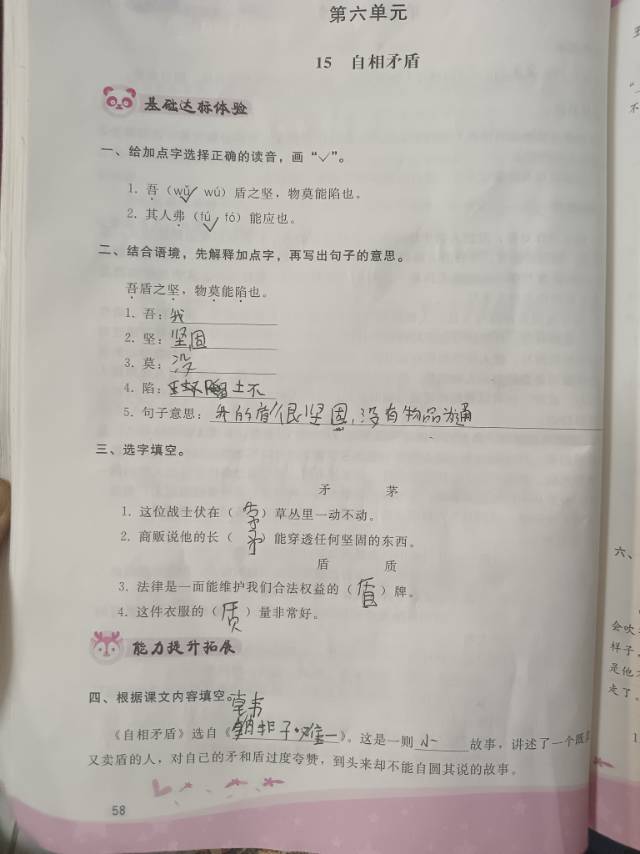 第六单元
15 自相矛盾
基础达标体验
一、给加点字选择正确的读音，画“✓”。
1. 吾（wǔ✓ wú）盾之坚，物莫能陷也。
2. 其人弗（fú✓ fó）能应也。
二、结合语境，先解释加点字，再写出句子的意思。
吾盾之坚，物莫能陷也。
1. 吾：我
2. 坚：坚固
3. 莫：没
4. 陷：
5. 句子意思：我的盾很坚固，没有物品
三、选字填空。
矛 茅
1. 这位战士伏在（茅）草丛里一动不动。
2. 商贩说他的长（矛）能穿透任何坚固的东西。
盾 质
3. 法律是一面能维护我们合法权益的（盾）牌。
4. 这件衣服的（质）量非常好。
能力提升拓展
四、根据课文内容填空。
《自相矛盾》选自《韩非子·难一》。这是一则小故事，讲述了一个既
又卖盾的人，对自己的矛和盾过度夸赞，到头来却不能自圆其说的故事。
58
六、
会吹
样子
是他
走了。